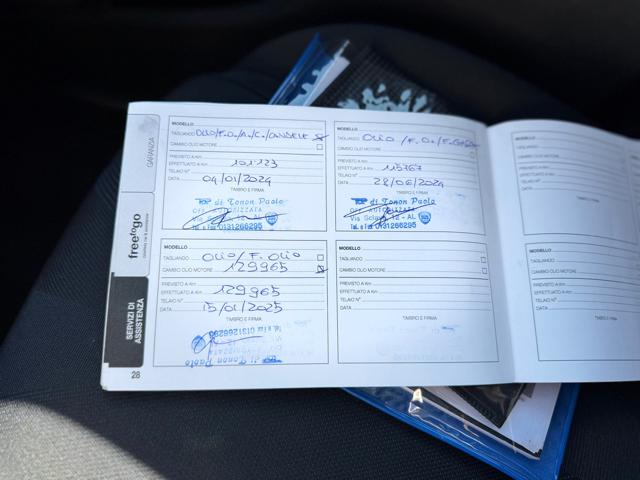 GARANZIA
freetogo
SERVIZI DI
ASSISTENZA
MODELLO
TAGLIANDO OLIO/F.O./A./C./CANDELE
CAMBIO OLIO MOTORE
PREVISTO A Km
EFFETTUATO A Km 101123
TELAIO N°
DATA 04/01/2024
TIMBRO E FIRMA
di Tonon Paolo
AUTORIZZATA
Via 12 - AL
Tel. e Fax 0131266295
MODELLO
TAGLIANDO OLIO /F.O./
CAMBIO OLIO MOTORE
PREVISTO A Km
EFFETTUATO A Km 115767
TELAIO N°
DATA 28/06/2024
TIMBRO E FIRMA
di Tonon Paolo
OFF. AUTORIZZATA
Via 12 - AL
Tel. e Fax 0131266295
MODELLO OLIO/F. OLIO
TAGLIANDO
CAMBIO OLIO MOTORE 129965
PREVISTO A Km
EFFETTUATO A Km 129965
TELAIO N°
DATA 15/01/2025
TIMBRO E FIRMA
Tel. e Fax 0131266295
di Tonon Paolo
MODELLO
TAGLIANDO
CAMBIO OLIO MOTORE
PREVISTO A Km
EFFETTUATO A Km
TELAIO N°
DATA
TIMBRO E FIRMA
MODELLO
TAGLIANDO
CAMBIO OLIO MOTORE
PREVISTO A Km
EFFETTUATO A Km
TELAIO N°
DATA
MODELLO
TAGLIANDO
CAMBIO OLIO MOTORE
PREVISTO A Km
EFFETTUATO A Km
TELAIO N°
DATA
28